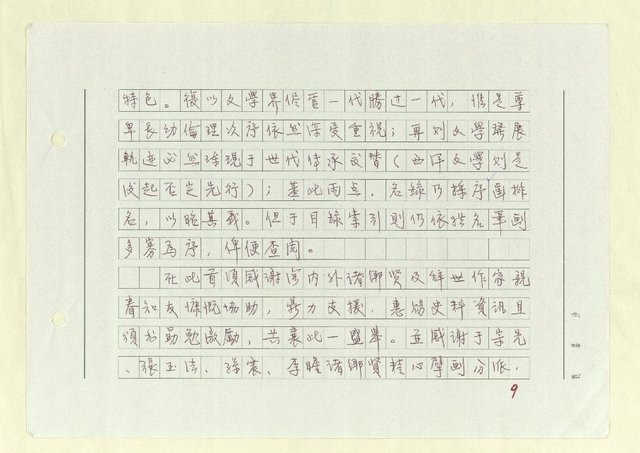 特色。復以文學界儘管一代勝过一代，惟是尊
卑長幼倫理次序依然深受重視；再則文學發展
軌迹必然呈現于世代傳承交替（西洋文學則是
後起否定先行）；基此兩点，名錄乃採序齒排
名，以昭其義。但于目錄索引則仍依姓名筆画
多寡為序，俾便查閱。
在此首須感謝海内外諸鄉賢及辭世作家親
眷知友慷慨協助，鼎力支援，惠賜史料資訊且
頒書勗勉激勵，共襄此一盛舉。並感谢于宗先
、張玉法、孫震、李瞻諸鄉賢精心擘画分派，
9